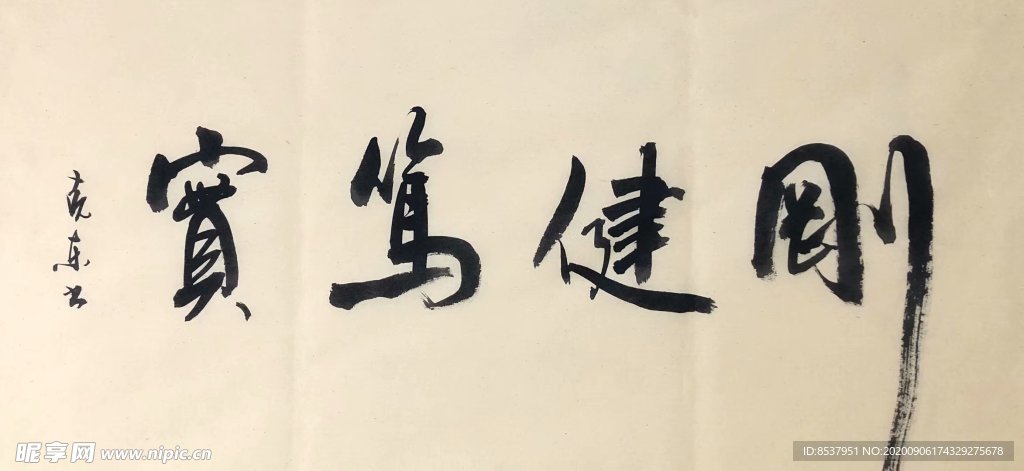 剛健篤實
克东书
昵享网 www.nipic.cn
ID:8537951 NO:20200906174329275678